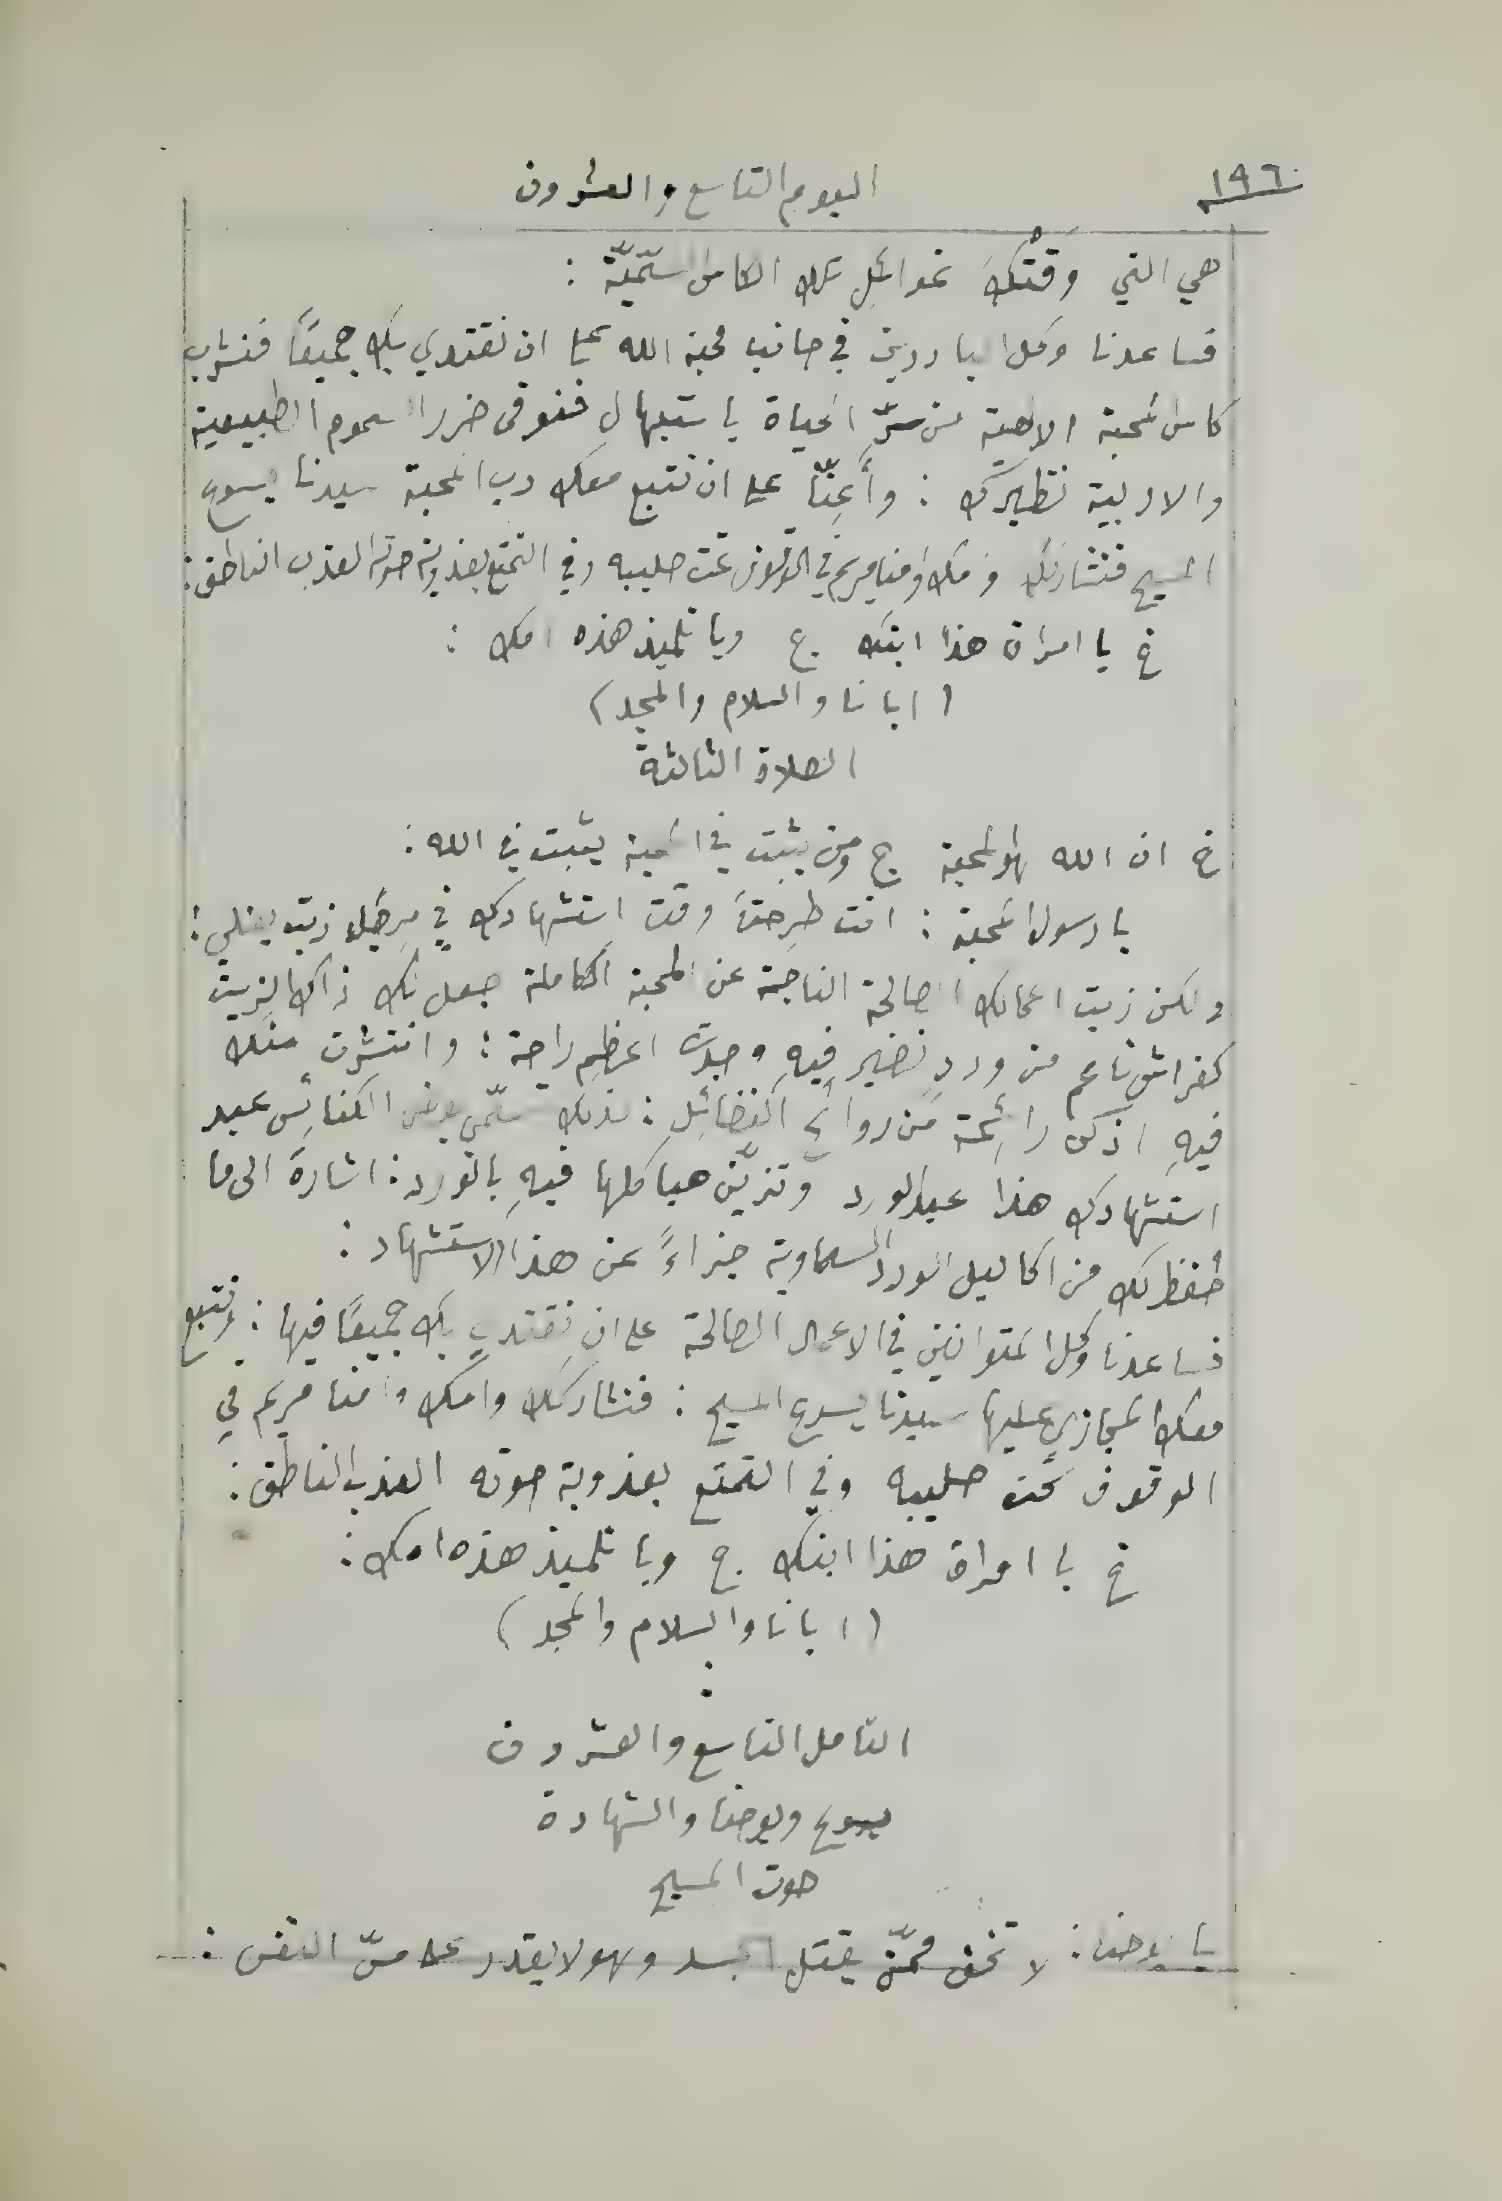 ١٩٦
اليوم التاسع والعشرون
هي التي وَقَتْكَ غوائلِ تلك الكاس السّمّيّة :
فساعدنا وكل الباردين في جانب محبة الله على ان نقتدي بك جميعًا فنشرب
كاس المحبة الالهية من سرّ الحياة باستيهالٍ فنوقى ضرر السموم الطبيعية
والادبية نظيرك : وأَعِنّا على ان نتبع معك رب المحبة سيدنا يسوع
المسيح فنشاركك وامك وامنا مريم في الوقوف تحت صليبه وفي التمتع بعذوبة صوته العذب الناطق :
خ يا امراة هذا ابنك ج ويا تلميذ هذه امك :
(ابانا والسلام والمجد)
الصلاة الثالثة
خ ان الله لهو المحبة ج ومن يثبت في المحبة يثبت في الله :
يا رسول المحبة : انت طُرِحتَ وقت استشهادك في مِرجَل زيت يغلي :
ولكن زيت اعمالك الصالحة الناتجة عن المحبة الكاملة جعل لك ذاك الزيت
كفراش ناعم من وردٍ نضير فيهِ وجدت اعظم راحة : وانتشرت منك
فيهِ اذكى رائحة من روائح الفضائل : لذلك تسمّي بعض الكنائس عيد
استشهادك هذا عيد الورد وتزيّن هياكلها فيهِ بالورد : اشارةً الى ما
حُفظ لك من اكاليل الورد السماوية جزاءً عن هذا الاستشهاد :
فساعدنا وكل المتوانين في الاعمال الصالحة على ان نقتدي بك جميعًا فيها : ونتبع
معك المجازي عليها سيدنا يسوع المسيح : فنشاركك وامك وامنا مريم في
الوقوف تحت صليبه وفي التمتع بعذوبة صوته العذب الناطق :
خ يا امراة هذا ابنك ج ويا تلميذ هذه امك :
(ابانا والسلام والمجد)
التامل التاسع والعشرون
يسوع ويوحنا والشهادة
صوت المسيح
يا يوحنا : لا تخف ممّن يقتل الجسد وهو لا يقدر على مسّ النفس :